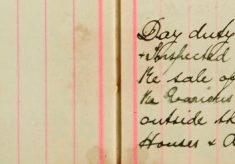 Day duty
& Inspected
Re sale of
the Various
outside the
Houses & A